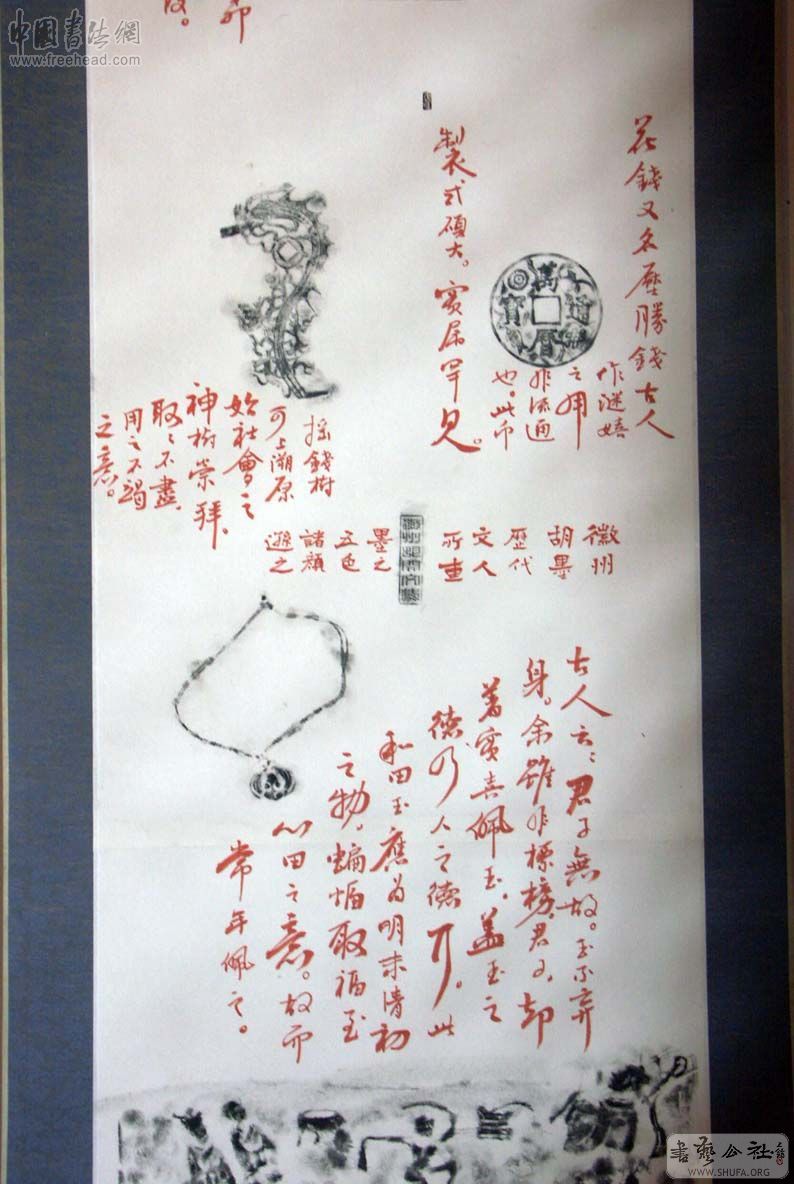 中國書法網
www.freehead.com
花錢又名壓勝錢古人
作謎嬉
之用
非法通
也。此币
製式碩大。實屬罕見。
萬曆通寶
搖錢樹
可上溯原
始社會之
神樹崇拜、
取之不盡、
用之不竭
之意。
徽州
胡墨
歷代
文人
所重
墨之
五色
諸顏
遜之
古人云：君子無故。玉不弃
身。余雖非標榜君子，却
着實喜佩玉，蓋玉之
德乃人之德耳。此
和田玉應為明末清初
之物，蝙蝠取福至
心田之意。故而
常年佩之。
書藝公社
WWW.SHUFA.ORG